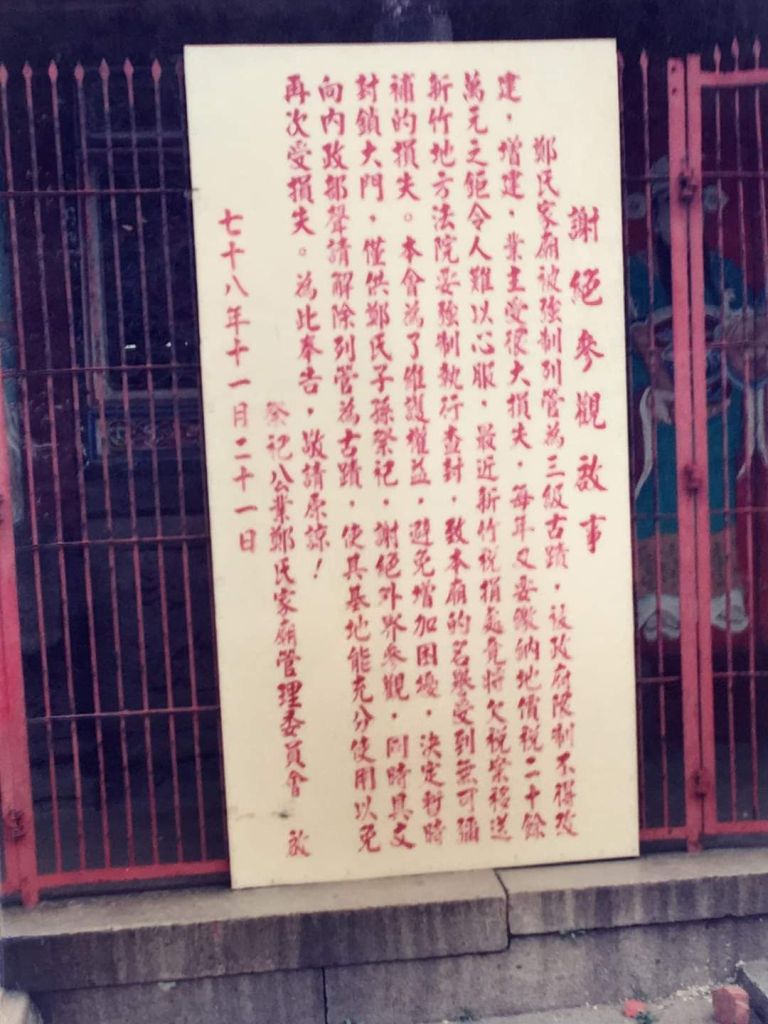 謝絕參觀啟事
鄭氏家廟被強制列管為三級古蹟，被政府限制不得改
建，增建，業主受很大損失，每年又要繳納地價稅二十餘
萬元之鉅令人難以心服，最近新竹稅捐處竟將欠稅案移送
新竹地方法院要強制執行查封，致本廟的名譽受到無可彌
補的損失。本會為了維護權益，避免增加困擾，決定暫時
封鎖大門，僅供鄭氏子孫祭祀，謝絕外界參觀，同時具文
向內政部聲請解除列管為古蹟，使其基地能充分使用以免
再次受損失。為此奉告，敬請原諒！
祭祀公業鄭氏家廟管理委員會 啟
七十八年十一月二十一日